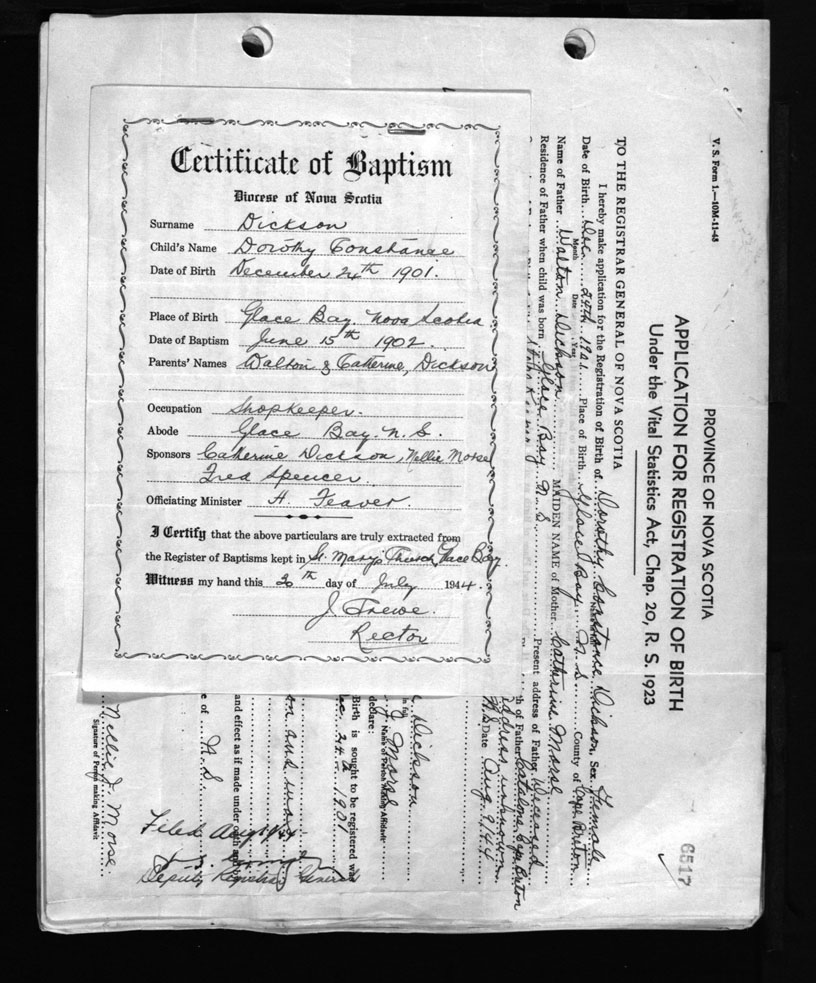 Certificate of Baptism
Diocese of Nova Scotia
Surname Dickson
Child's Name Dorothy Constance
Date of Birth December 24th 1901.
Place of Birth Glace Bay. Nova Scotia
Date of Baptism June 15th 1902.
Parents' Names Walton & Catherine, Dickson
Occupation Shopkeeper.
Abode Glace Bay. N. S.
Sponsors Catherine Dickson, Nellie Morse
Fred Spencer
Officiating Minister H. Feaver.
I Certify that the above particulars are truly extracted from
the Register of Baptisms kept in St. Mary's Church, Glace Bay.
Witness my hand this 26th day of July 1944.
J. Frewe.
Rector
V. S. Form 1.—10M-11-43
PROVINCE OF NOVA SCOTIA
APPLICATION FOR REGISTRATION OF BIRTH
Under the Vital Statistics Act, Chap. 20, R. S. 1923
6517
TO THE REGISTRAR GENERAL OF NOVA SCOTIA
I hereby make application for the Registration of Birth of Dorothy Constance Dickson Sex Female
Date of Birth Dec. 24th 1901. Place of Birth Glace Bay N S County of Cape Breton
Month Date Year
Name of Father Walton Dickson MAIDEN NAME of Mother Catherine Morse
Residence of Father when child was born Glace Bay N. S Present address of Father Deceased
th of Father Catalone, Cape Breton
address unknown
N.S Date Aug 9/44
Dickson
in full
J Morse
Name of Person Making Affidavit
declare:
Birth is sought to be registered was
ec. 24th 1901
on and
and effect as if made under oath
e of N.S.
Nellie J. Morse
Signature of Person making Affidavit
Filed Aug
Deputy Registrar General